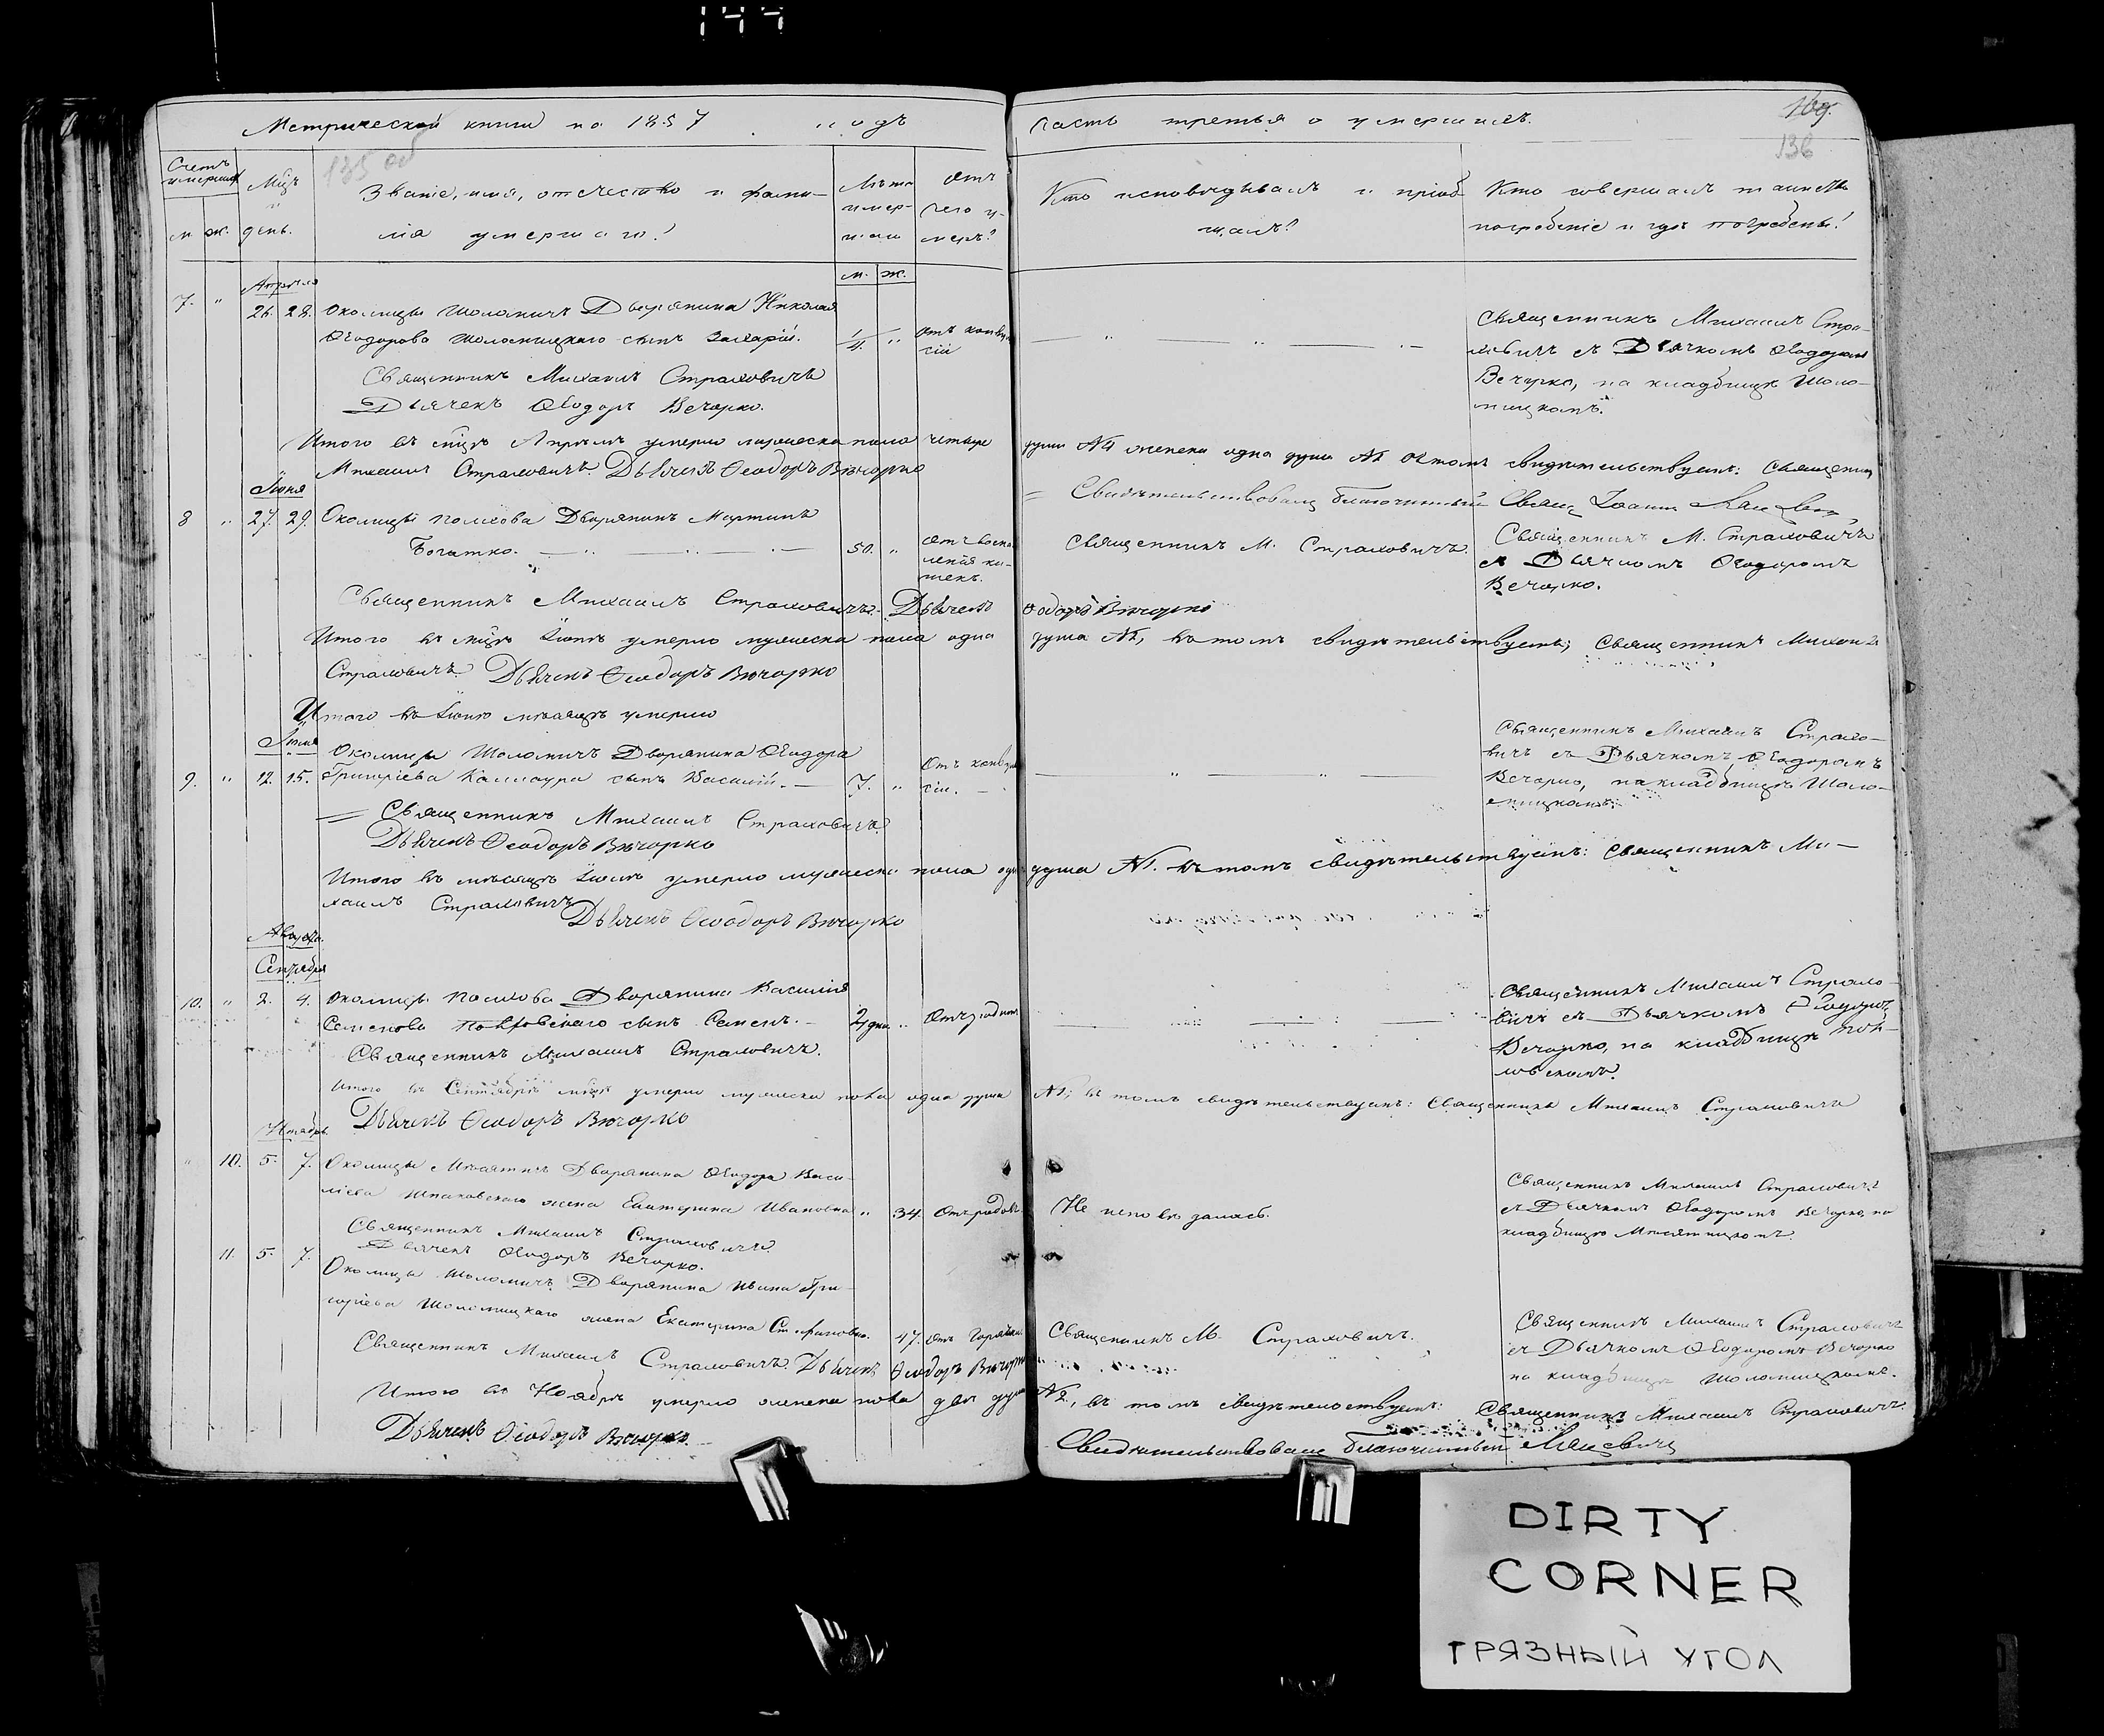 Метрической книги на 1857 годъ
Часть третья о умершихъ.
169.
136
135 об
Счетъ умершихъ
м. ж.
Мцъ и день.
Званіе, имя, отчество и фамилія умершаго?
Лѣта умершаго
м. ж.
Отъ чего умеръ?
Кто исповѣдывалъ и пріобщалъ?
Кто совершалъ таинство погребеніе и гдѣ погребены?
Апрѣля
7. " 26. 28. Околицы Шоломичъ Дворянина Николая
Ѳеодорова Шоломицкаго сынъ Захарій. 1/4. " Отъ конвульсіи
Священникъ Михаилъ Страховичъ
Дьячекъ Ѳеодоръ Вечорко.
Священникъ Михаилъ Стра-
ховичъ съ Дьячкомъ Ѳеодоромъ
Вечорко, на кладбищѣ Шоло-
мицкомъ.
Итого въ мцѣ Апрѣлѣ умерло мужеска пола четыре души №4 женска одна душа №1 въ томъ свидѣтельствуемъ: Священникъ
Михаилъ Страховичъ. Дьячекъ Ѳеодоръ Вечорко
Свидѣтельствовалъ благочинный Свящ. Іоаннъ
Іюня
8 " 27. 29. Околицы Полхова Дворянинъ Мартинъ
Богатко. 50. " Отъ воспаленія кишекъ.
Священникъ М. Страховичъ.
Священникъ М. Страховичъ
съ Дьячкомъ Ѳеодоромъ
Вечорко.
Священникъ Михаилъ Страховичъ. Дьячекъ Ѳеодоръ Вечорко
Итого въ мцѣ Іюнѣ умерло мужеска пола одна душа №1, въ томъ свидѣтельствуемъ; Священникъ Михаилъ
Страховичъ. Дьячекъ Ѳеодоръ Вечорко
Итого въ Іюнѣ мѣсяцѣ умерло
Околицы Шоломичъ Дворянина Ѳеодора
9. " 12. 15. Григоріева Каллаура сынъ Василій. 7. " Отъ конвульсіи.
Священникъ Михаилъ Страховичъ.
Дьячекъ Ѳеодоръ Вечорко
Священникъ Михаилъ Страхо-
вичъ съ Дьячкомъ Ѳеодоромъ
Вечорко, на кладбищѣ Шоло-
мицкомъ.
Итого въ мѣсяцѣ умерло мужеска пола одна душа №1. въ томъ свидѣтельствуемъ: Священникъ Ми-
хаилъ Страховичъ
Дьячекъ Ѳеодоръ Вечорко
Августа.
Сентября
10. " 2. 4. Околицы Полхова Дворянина Василія
Семенова сынъ Семенъ. 2 дни. "
Священникъ Михаилъ Страховичъ.
Священникъ Михаилъ Страхо-
вичъ съ Дьячкомъ Ѳеодоромъ
Вечорко, на кладбищѣ Пол-
ховскомъ.
Итого въ Сентябрѣ мцѣ умерло мужеска пола одна душа №1; въ томъ свидѣтельствуемъ: Священникъ Михаилъ Страховичъ
Дьячекъ Ѳеодоръ Вечорко
Ноября.
" 10. 5. 7. Околицы Дворянина Ѳеодора Васи-
ліева Шпаковскаго жена Екатерина Ивановна " 34. Отъ родовъ. Не исповѣдалась.
Священникъ Михаилъ Страховичъ.
Дьячекъ Ѳеодоръ Вечорко.
Священникъ Михаилъ Страховичъ
съ Дьячкомъ Ѳеодоромъ Вечорко, на
кладбищѣ
11. 5. 7.
Околицы Шоломичъ Дворянина Ивана Гри-
горіева Шоломицкаго жена Екатерина Стефановна. 47. Отъ горячки.
Священникъ М. Страховичъ.
Священникъ Михаилъ Страховичъ
съ Дьячкомъ Ѳеодоромъ Вечорко
на кладбищѣ Шоломицкомъ.
Священникъ Михаилъ Страховичъ. Дьячекъ Ѳеодоръ Вечорко
Итого въ Ноябрѣ умерло женска пола двѣ души №2, въ томъ свидѣтельствуемъ: Священникъ Михаилъ Страховичъ.
Дьячекъ Ѳеодоръ Вечорко.
Свидѣтельствовалъ благочинный
DIRTY
CORNER
ГРЯЗНЫЙ УГОЛ